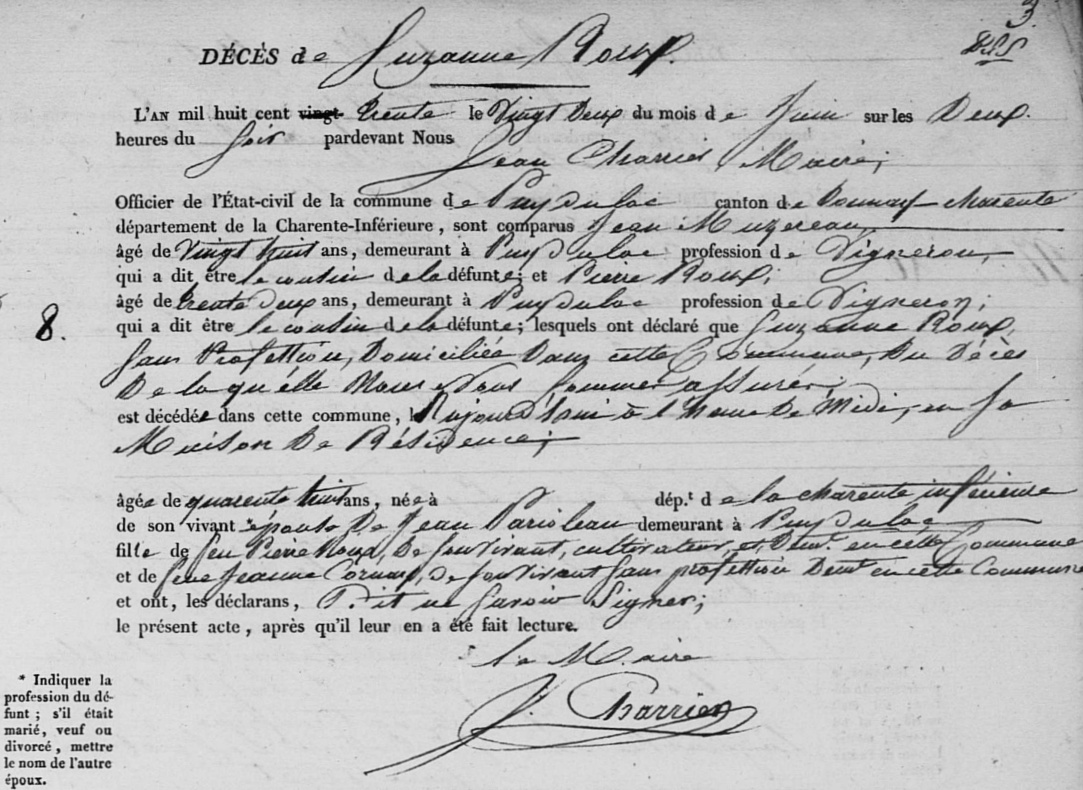 3
DÉCÈS de Suzanne Roux.
L'AN mil huit cent vingt trente le Vingt Deux du mois de Juin sur les Deux.
heures du Soir pardevant Nous
Jean Charrier, Maire,
Officier de l'État-civil de la commune de Puy du lac canton de Tonnay charente
département de la Charente-Inférieure, sont comparus Jean Muzereau,
âgé de Vingt huit ans, demeurant à Puy du lac profession de Vigneron,
qui a dit être le cousin de la défunte; et Pierre Roux;
âgé de trente deux ans, demeurant à Puy du lac profession de Vigneron;
8.
qui a dit être le cousin de la défunte; lesquels ont déclaré que Suzanne Roux,
sans Profession, Domiciliée Dans cette Commune, Du Décès
De la quelle Nous Nous sommes assurés;
est décédée dans cette commune, aujourd'hui à l'heure De Midi, en sa
Maison De Résidence;
âgée de quarente huit ans, née à dép.t de la charente inférieure
de son vivant épouse De Jean demeurant à Puy du lac
fille de feu Pierre Roux, De son vivant, cultivateur, et Demt. en cette Commune
et de feue Jeanne de son vivant sans profession Demt en cette Commune
et ont, les déclarans, Dit ne savoir Signer;
le présent acte, après qu'il leur en a été fait lecture.
le Maire
J. Charrier
* Indiquer la
profession du dé-
funt; s'il était
marié, veuf ou
divorcé, mettre
le nom de l'autre
époux.